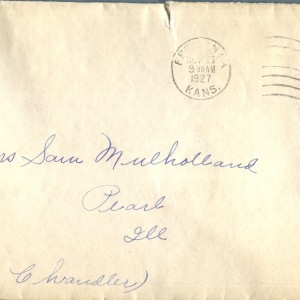 9 30 AM
1927
KANS.
rs Sam Mulholland
Pearl
Ill
(Chandler)